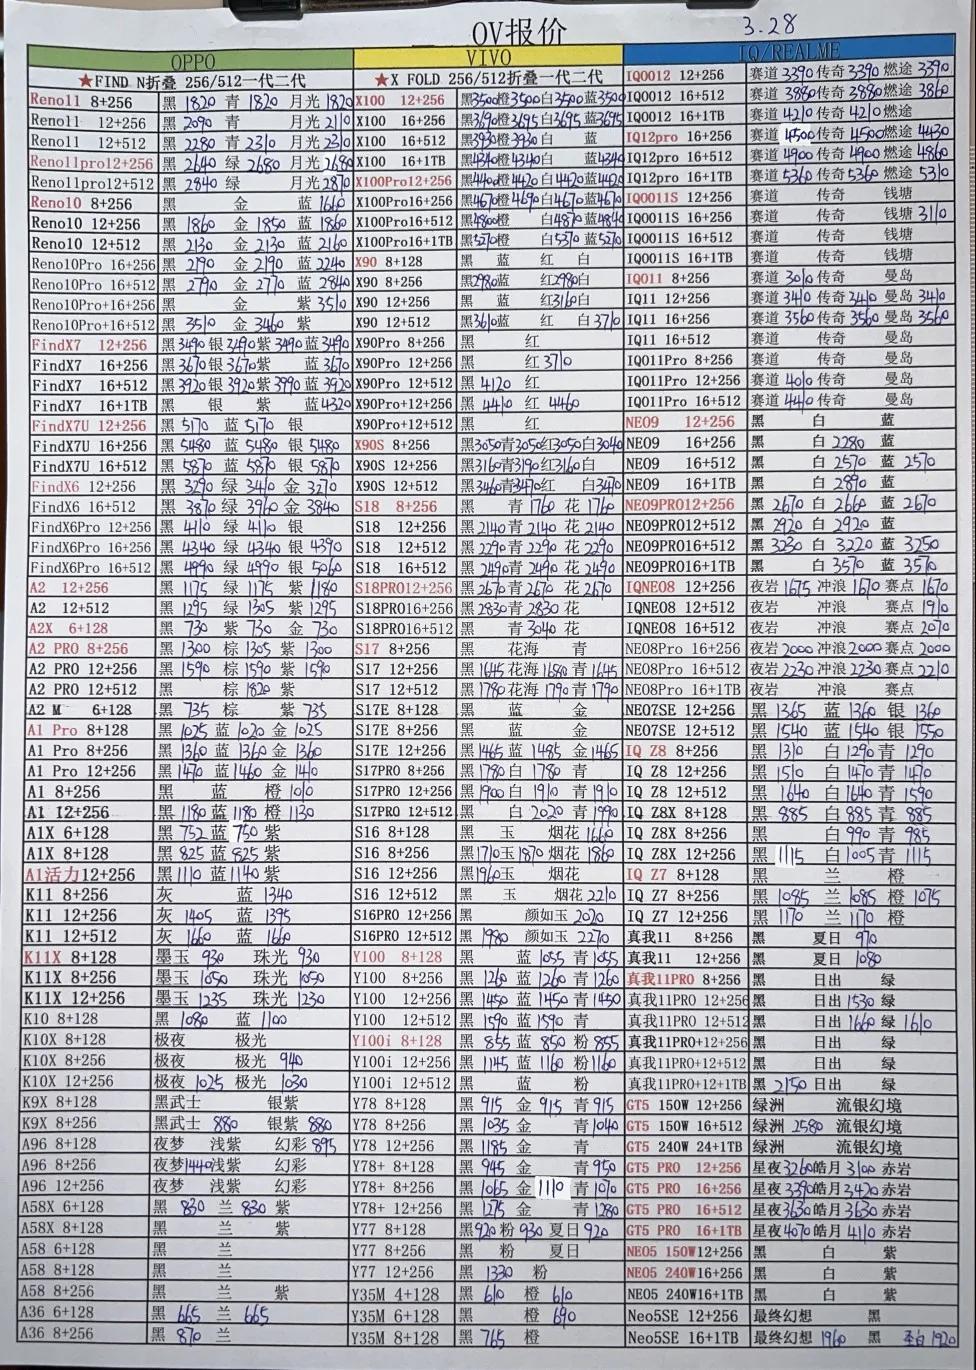 OV报价 3.28
OPPO VIVO IQ/REALME
★FIND N折叠 256/512一代二代 ★X FOLD 256/512折叠一代二代 IQ0012 12+256 赛道 3390 传奇 3390 燃途 3390
Reno11 8+256 黑 1820 青 1820 月光 1820 X100 12+256 黑3500橙3500白3500蓝3500 IQ0012 16+512 赛道 3880 传奇 3880 燃途 3860
Reno11 12+256 黑 2090 青 月光 2110 X100 16+256 黑3690橙3695白3695蓝3695 IQ0012 16+1TB 赛道 4210 传奇 4210 燃途
Reno11 12+512 黑 2280 青 2310 月光 2310 X100 16+512 黑3930橙3930白 蓝 IQ12pro 16+256 赛道 4500 传奇 4500 燃途 4430
Reno11pro12+256 黑 2640 绿 2680 月光 2680 X100 16+1TB 黑4340橙4340白 蓝4340 IQ12pro 16+512 赛道 4900 传奇 4900 燃途 4860
Reno11pro12+512 黑 2840 绿 月光 2870 X100Pro12+256 黑4400橙4420白4420蓝4420 IQ12pro 16+1TB 赛道 5360 传奇 5360 燃途 5310
Reno10 8+256 黑 金 蓝 1660 X100Pro16+256 黑4670橙4690白4670蓝4670 IQ0011S 12+256 赛道 传奇 钱塘
Reno10 12+256 黑 1860 金 1850 蓝 1860 X100Pro16+512 黑4800橙 白4870蓝4840 IQ0011S 16+256 赛道 传奇 钱塘 3110
Reno10 12+512 黑 2130 金 2130 蓝 2160 X100Pro16+1TB 黑5270橙 白5370蓝5270 IQ0011S 16+512 赛道 传奇 钱塘
Reno10Pro 16+256 黑 2190 金 2190 蓝 2240 X90 8+128 黑 蓝 红 白 IQ0011S 16+1TB 赛道 传奇 钱塘
Reno10Pro 16+512 黑 2790 金 2770 蓝 2840 X90 8+256 黑2980蓝 红2980白 IQ011 8+256 赛道 3010 传奇 曼岛
Reno10Pro+16+256 黑 金 紫 3510 X90 12+256 黑 蓝 红3160白 IQ11 12+256 赛道 3410 传奇 3410 曼岛 3410
Reno10Pro+16+512 黑 3510 金 3460 紫 X90 12+512 黑3610蓝 红 白 3710 IQ11 16+256 赛道 3560 传奇 3560 曼岛 3560
FindX7 12+256 黑 3490 银 3490 紫 3490 蓝 3490 X90Pro 8+256 黑 红 IQ11 16+512 赛道 传奇 曼岛
FindX7 16+256 黑 3670 银 3670 紫 蓝 3670 X90Pro 12+256 黑 红 3710 IQ011Pro 8+256 赛道 传奇 曼岛
FindX7 16+512 黑 3920 银 3920 紫 3990 蓝 3920 X90Pro 12+512 黑 4120 红 IQ011Pro 12+256 赛道 4010 传奇 曼岛
FindX7 16+1TB 黑 银 紫 蓝 4320 X90Pro+12+256 黑 4410 红 4460 IQ011Pro 16+512 赛道 4410 传奇 曼岛
FindX7U 12+256 黑 5170 蓝 5170 银 X90Pro+12+512 黑 红 NE09 12+256 黑 白 蓝
FindX7U 16+256 黑 5480 蓝 5480 银 5480 X90S 8+256 黑3050青3050红3050白3040 NE09 16+256 黑 白 2280 蓝
FindX7U 16+512 黑 5870 蓝 5870 银 5870 X90S 12+256 黑3160青3190红3160白 NE09 16+512 黑 白 2570 蓝 2570
FindX6 12+256 黑 3290 绿 3410 金 3270 X90S 12+512 黑3460青3470红 白3470 NE09 16+1TB 黑 白 2890 蓝
FindX6 16+512 黑 3870 绿 3960 金 3840 S18 8+256 黑 青 1760 花 1760 NE09PRO12+256 黑 2670 白 2660 蓝 2670
FindX6Pro 12+256 黑 4110 绿 4110 银 S18 12+256 黑2140青 2140 花 2140 NE09PRO12+512 黑 2920 白 2920 蓝
FindX6Pro 16+256 黑 4340 绿 4340 银 4390 S18 12+512 黑2290青 2290 花 2290 NE09PRO16+512 黑 3230 白 3220 蓝 3250
FindX6Pro 16+512 黑 4990 绿 4990 银 5060 S18 16+512 黑2490青 2490 花 2490 NE09PRO16+1TB 黑 白 3570 蓝 3570
A2 12+256 黑 1175 绿 1175 紫 1180 S18PRO12+256 黑2670青 2670 花 2670 IQNE08 12+256 夜岩 1675 冲浪 1670 赛点 1670
A2 12+512 黑 1295 绿 1305 紫 1295 S18PRO16+256 黑2830青 2830 花 IQNE08 12+512 夜岩 冲浪 赛点 1910
A2X 6+128 黑 730 紫 730 金 730 S18PRO16+512 黑 青 3040 花 IQNE08 16+512 夜岩 冲浪 赛点 2070
A2 PRO 8+256 黑 1300 棕 1305 紫 1300 S17 8+256 黑 花海 青 NE08Pro 16+256 夜岩 2000 冲浪 2000 赛点 2000
A2 PRO 12+256 黑 1590 棕 1590 紫 1590 S17 12+256 黑1645花海 1680 青 1645 NE08Pro 16+512 夜岩 2230 冲浪 2230 赛点 2210
A2 PRO 12+512 黑 棕 1820 紫 S17 12+512 黑1780花海 1790 青 1790 NE08Pro 16+1TB 夜岩 冲浪 赛点
A2 M 6+128 黑 735 棕 紫 735 S17E 8+128 黑 蓝 金 NE07SE 12+256 黑 1365 蓝 1360 银 1360
A1 Pro 8+128 黑 1025 蓝 1020 金 1025 S17E 8+256 黑 蓝 金 NE07SE 12+512 黑 1540 蓝 1540 银 1550
A1 Pro 8+256 黑 1360 蓝 1360 金 1360 S17E 12+256 黑1465 蓝 1485 金1465 IQ Z8 8+256 黑 1310 白 1290 青 1290
A1 Pro 12+256 黑 1470 蓝 1460 金 1410 S17PRO 8+256 黑1780白 1780 青 IQ Z8 12+256 黑 1510 白 1470 青 1470
A1 8+256 黑 蓝 橙 1010 S17PRO 12+256 黑1900白 1910 青 1910 IQ Z8 12+512 黑 1640 白 1640 青 1590
A1 12+256 黑 1180 蓝 1180 橙 1130 S17PRO 12+512 黑 白 2020 青 1990 IQ Z8X 8+128 黑 885 白 885 青 885
A1X 6+128 黑 752 蓝 750 紫 S16 8+128 黑 玉 烟花 1660 IQ Z8X 8+256 黑 白 990 青 985
A1X 8+128 黑 825 蓝 825 紫 S16 8+256 黑1710玉 1870 烟花 1860 IQ Z8X 12+256 黑 1115 白 1005 青 1115
A1活力12+256 黑 1110 蓝 1140 紫 S16 12+256 黑1960玉 烟花 IQ Z7 8+128 黑 兰 橙
K11 8+256 灰 蓝 1340 S16 12+512 黑 玉 烟花 2210 IQ Z7 8+256 黑 1085 兰 1085 橙 1075
K11 12+256 灰 1405 蓝 1395 S16PRO 12+256 黑 颜如玉 2020 IQ Z7 12+256 黑 1170 兰 1170 橙
K11 12+512 灰 1660 蓝 1660 S16PRO 12+512 黑 1980 颜如玉 2270 真我11 8+256 黑 夏日 970
K11X 8+128 墨玉 930 珠光 930 Y100 8+128 黑 蓝 1055 青 1055 真我11 12+256 黑 夏日 1080
K11X 8+256 墨玉 1050 珠光 1050 Y100 8+256 黑 1260 蓝 1260 青 1260 真我11PRO 8+256 黑 日出 绿
K11X 12+256 墨玉 1235 珠光 1230 Y100 12+256 黑 1450 蓝 1450 青 1450 真我11PRO 12+256 黑 日出 1530 绿
K10 8+128 黑 1080 蓝 1100 Y100 12+512 黑 1590 蓝 1590 青 真我11PRO 12+512 黑 日出 1660 绿 1610
K10X 8+128 极夜 极光 Y100i 8+128 黑 855 蓝 850 粉 855 真我11PRO+12+256 黑 日出 绿
K10X 8+256 极夜 极光 940 Y100i 12+256 黑 1145 蓝 1160 粉 1160 真我11PRO+12+512 黑 日出 绿
K10X 12+256 极夜 1025 极光 1030 Y100i 12+512 黑 蓝 粉 真我11PRO+12+1TB 黑 2150 日出 绿
K9X 8+128 黑武士 银紫 Y78 8+128 黑 915 金 915 青 915 GT5 150W 12+256 绿洲 流银幻境
K9X 8+256 黑武士 880 银紫 880 Y78 8+256 黑 1035 金 青 1040 GT5 150W 16+512 绿洲 2580 流银幻境
A96 8+128 夜梦 浅紫 幻彩 895 Y78 12+256 黑 1185 金 青 GT5 240W 24+1TB 绿洲 流银幻境
A96 8+256 夜梦1440浅紫 幻彩 Y78+ 8+128 黑 945 金 青 950 GT5 PRO 12+256 星夜 3260 皓月 3100 赤岩
A96 12+256 夜梦 浅紫 幻彩 Y78+ 8+256 黑 1065 金 1110 青 1070 GT5 PRO 16+256 星夜 3390 皓月 3420 赤岩
A58X 6+128 黑 830 兰 830 紫 Y78+ 12+256 黑 1275 金 青 1280 GT5 PRO 16+512 星夜 3630 皓月 3630 赤岩
A58X 8+128 黑 兰 紫 Y77 8+128 黑920 粉 930 夏日 920 GT5 PRO 16+1TB 星夜 4070 皓月 4110 赤岩
A58 6+128 黑 兰 Y77 8+256 黑 粉 夏日 NE05 150W12+256 黑 白 紫
A58 8+128 黑 兰 Y77 12+256 黑 1330 粉 NE05 240W16+256 黑 白 紫
A58 8+256 黑 兰 紫 Y35M 4+128 黑 610 橙 610 NE05 240W16+1TB 黑 白 紫
A36 6+128 黑 665 兰 665 Y35M 6+128 黑 橙 690 Neo5SE 12+256 最终幻想 黑
A36 8+256 黑 870 兰 Y35M 8+128 黑 765 橙 Neo5SE 16+1TB 最终幻想 1960 黑 圣白 1920